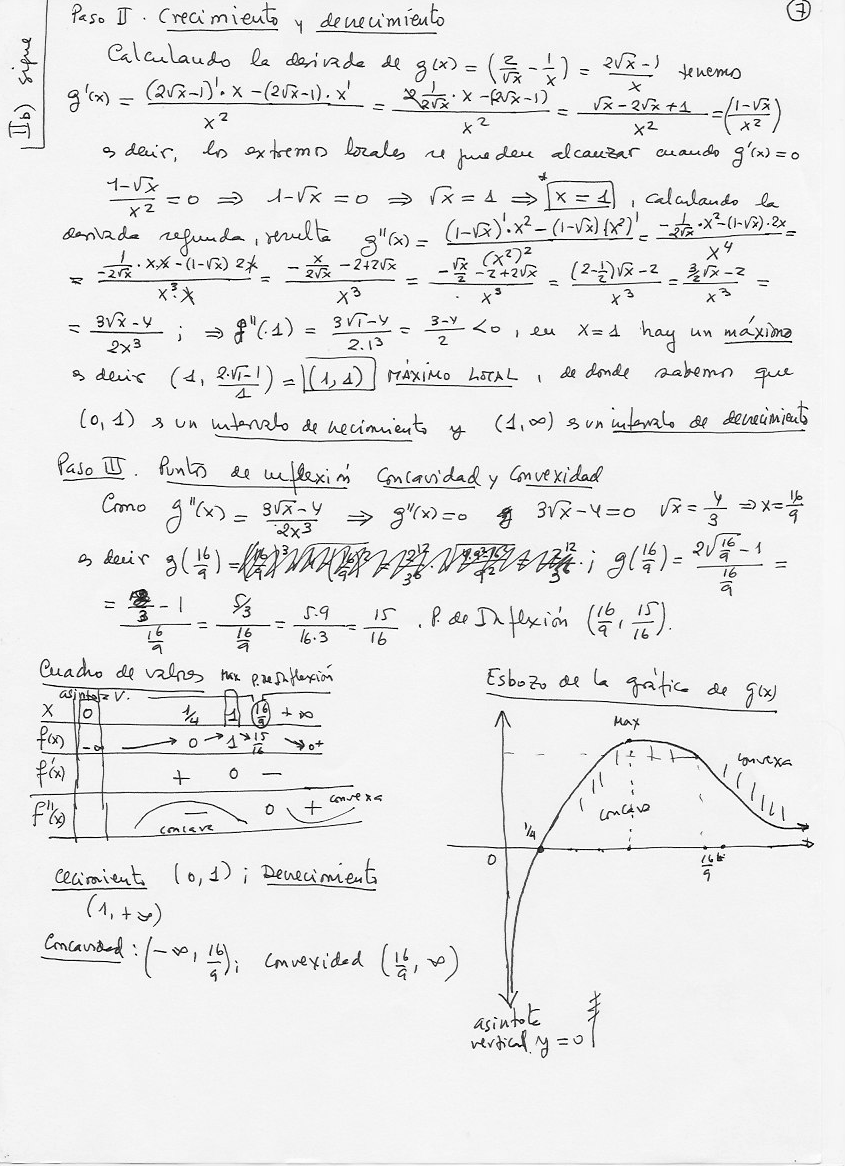 7
IIb) sigue
Paso II. Crecimiento y decrecimiento
Calculando la derivada de g(x) = (2/√x - 1/x) = (2√x - 1)/x tenemos
g'(x) = ((2√x-1)'·x - (2√x-1)·x')/x² = (2 1/(2√x)·x - (2√x-1))/x² = (√x - 2√x + 1)/x² = (1-√x)/x²
es decir, los extremos locales se pueden alcanzar cuando g'(x)=0
(1-√x)/x² = 0 ⇒ 1-√x = 0 ⇒ √x = 1 ⇒ x = 1, calculando la
derivada segunda, resulta g''(x) = ((1-√x)'·x² - (1-√x)(x²)')/(x²)² = (-1/(2√x)·x² - (1-√x)·2x)/x⁴ =
= (-1/(2√x)·x·x - (1-√x) 2x)/(x³·x) = (-x/(2√x) - 2+2√x)/x³ = (-√x/2 - 2+2√x)/x³ = ((2-1/2)√x - 2)/x³ = (3/2√x - 2)/x³ =
= (3√x-4)/(2x³) ; ⇒ g''(1) = (3√1-4)/(2·1³) = (3-4)/2 < 0, en x=1 hay un máximo
es decir (1, (2·√1-1)/1) = (1, 1) MÁXIMO LOCAL, de donde sabemos que
(0,1) es un intervalo de crecimiento y (1,∞) es un intervalo de decrecimiento
Paso III. Puntos de inflexión Concavidad y Convexidad
Como g''(x) = (3√x-4)/(2x³) ⇒ g''(x)=0 3√x-4=0 √x = 4/3 ⇒ x = 16/9
es decir g(16/9) = ; g(16/9) = (2√(16/9) - 1)/(16/9) =
= (8/3 - 1)/(16/9) = (5/3)/(16/9) = 5·9/16·3 = 15/16 . P. de Inflexión (16/9, 15/16).
Cuadro de valores Max P. de Inflexión
asíntota V.
x 0 1/4 1 16/9 +∞
f(x) -∞ → 0 → 1 → 15/16 → 0+
f'(x) + 0 -
f''(x) - concave 0 + convexa
Cecimiento (0,1) ; Decrecimiento
(1, +∞)
Concavidad : (-∞, 16/9); convexidad (16/9, ∞)
Esbozo de la gráfica de g(x)
Max
convexa
concave
1/4
0
16/9
asíntote
vertical y = 0